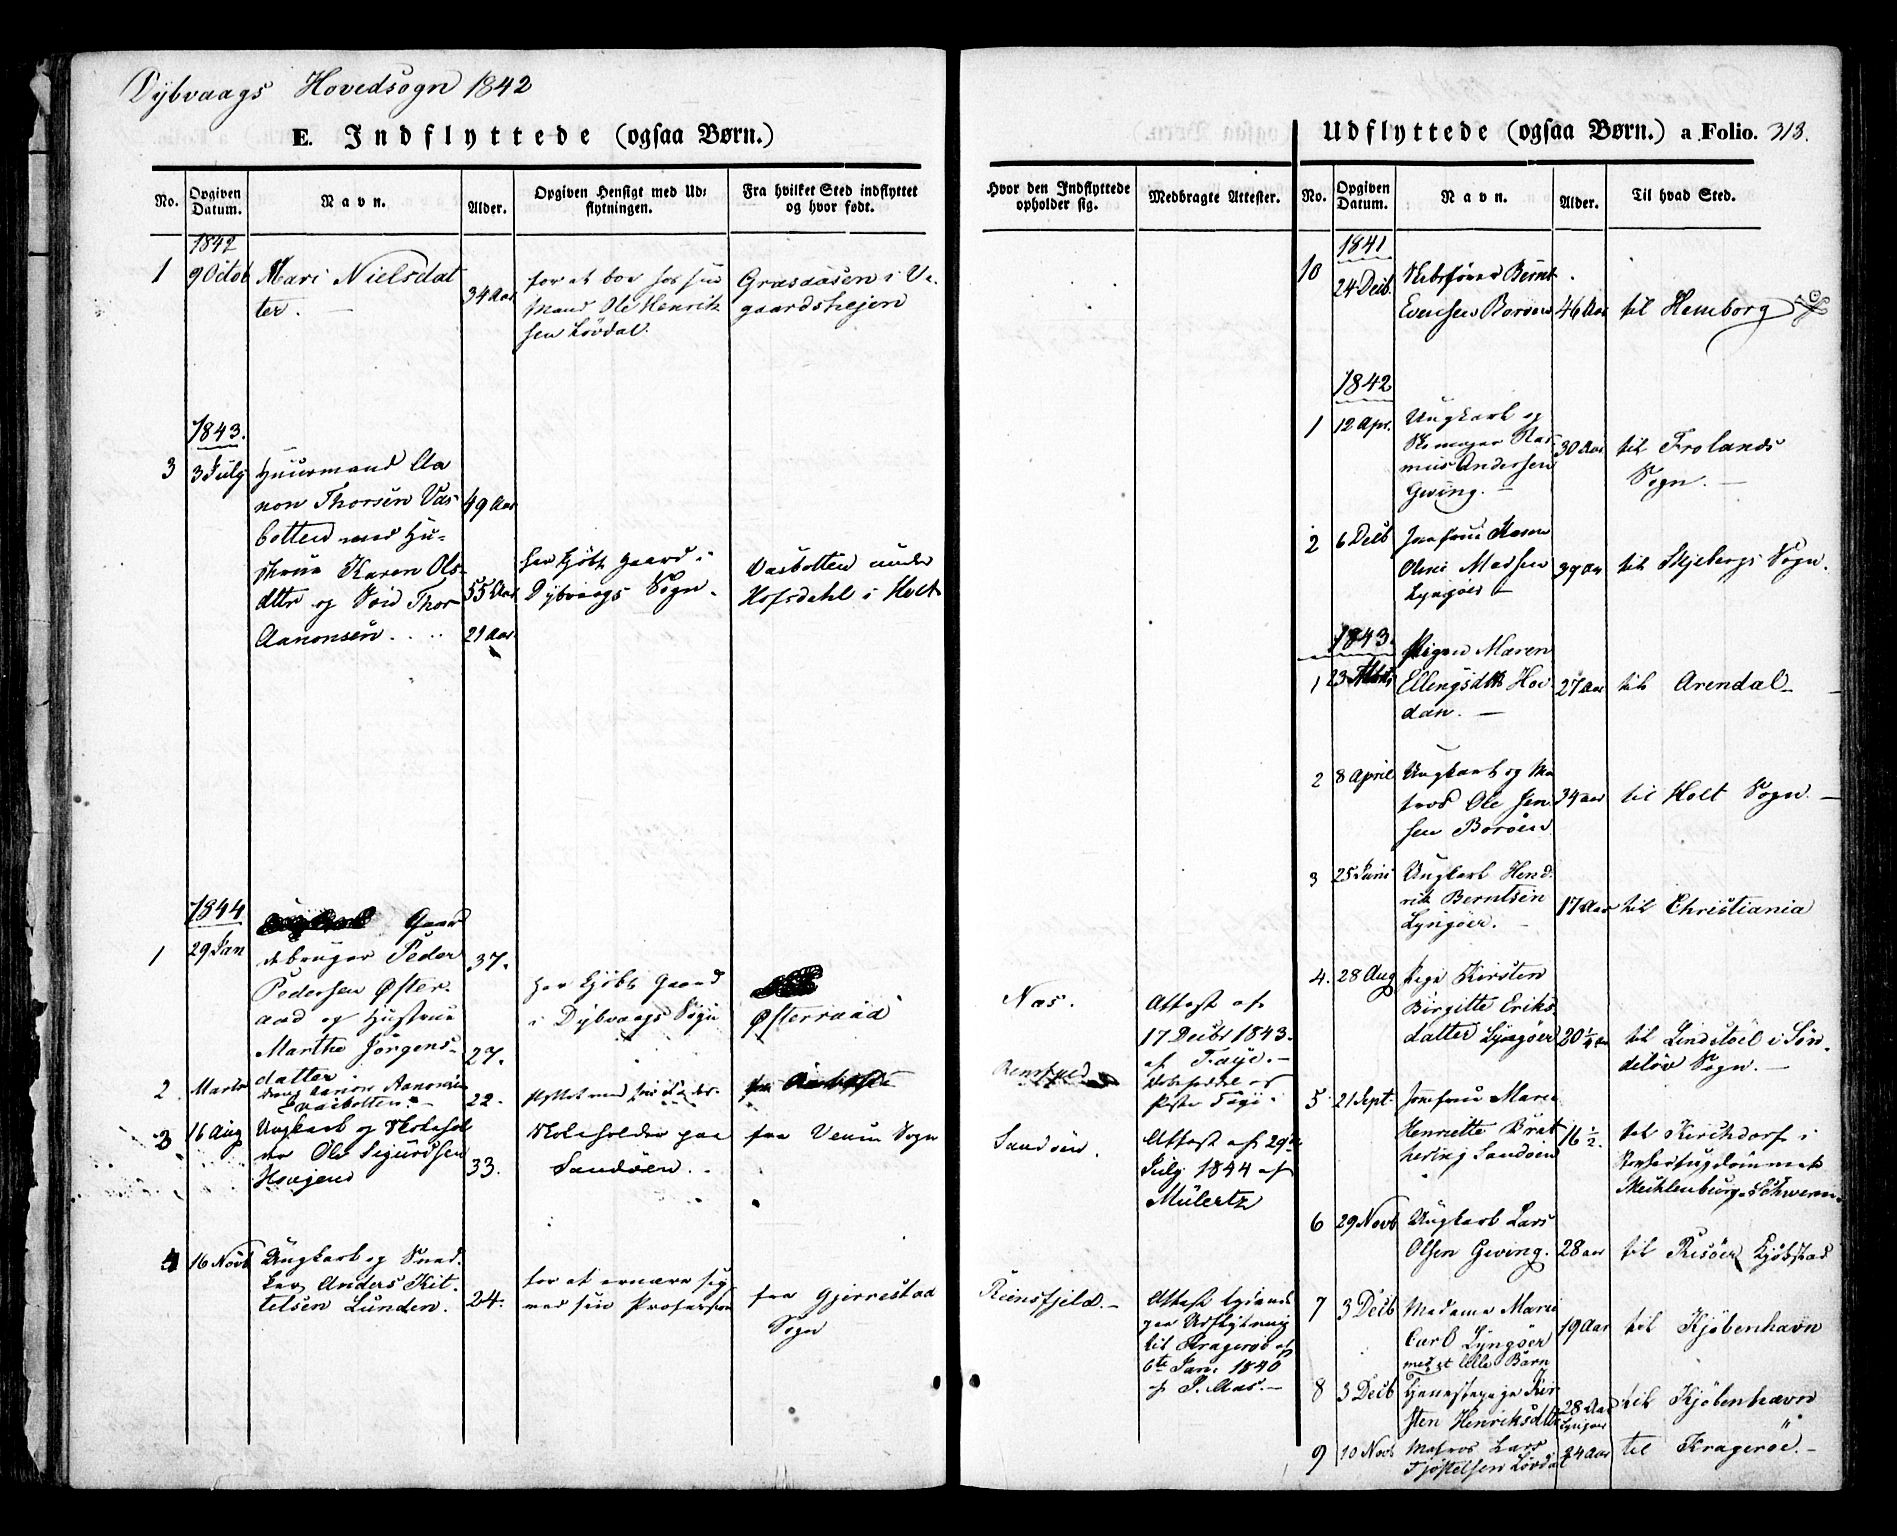 Dybvaags Hovedsogn 1842
E. Indflyttede (ogsaa Børn.)
No.
Opgiven Datum.
Navn.
Alder.
Opgiven Hensigt med Udflytningen.
Fra hvilket Sted indflyttet og hvor født.
Hvor den Indflyttede opholder sig.
Medbragte Attester.
1842
1
9 Octob
Mari Nielsdat
ter.
34 Aar
for at boe hos sin
Mand Ole Henrik
sen Lövdal.
Græsaasen i Ve
gaardsheien
1843.
3
3 July
Huusmand Aa
non Thorsen Vas
botten med Hu-
strue Karen Ols-
dttr og Søn Thor
Aanonsen
49 Aar
55 Aar
21 Aar
har kjöbt Gaard i
Dybvaags Sogn.
Vasbotten under
Hofsdahl i Holt
1844
1
29 Jan
Gaard
debruger Peder
Pedersen Øster
aad og Hustrue
Marthe Jörgens-
datter
37.
27.
har kjöbt Gaard
i Dybvaags Sogn
Østeraad
Næs.
Attest af
17 Decbr 1843.
af Faye.
2
Marts
Aanon Aanonsen
Vasbotten.
22.
flyttet med sin Fader
3
16 Aug
Ungkarl og Skolehol
der Ole Sigurdsen
33.
Skoleholder paa
Sandøen.
fra Sogn
Sandøen.
Attest af 29de
July 1844 af
Mülertz
4
16 Novb
Ungkarl og Sned-
ker Anders Kit-
telsen Lunden.
24.
for at ernære sig
med sin Profession
fra Gjerrestad
Sogn
Reinsfjeld.
Attest lydende
paa Udflytning
til Kragerøe af
6te Jan. 1840
af P. Aas.
Udflyttede (ogsaa Børn.) a Folio. 313.
No.
Opgiven Datum.
Navn.
Alder.
Til hvad Sted.
1841
10
24 Decb.
Skibsförer Bernt
Evensen Borøen
46 Aar
til Hemborg
1842
1
12 Apr.
Ungkarl og
Skomager Ras-
mus Andersen
Geving.
30 Aar
til Frolands
Sogn.
2
6 Decb
Jomfrue Karen
Oline Madsen
Lyngöer
39 Aar
til Skjebergs Sogn.
1843.
1
23
Pigen Maren
Ellingsdttr Hov
dan.
27 Aar
til Arendal
2
8 April
Ungkarl og Ma
tros Ole Jen
sen Borøen
34 aar
til Holt Sogn.
3
25 Juni
Ungkarl Hend
rik Berntsen
Lyngöer.
17 Aar
til Christiania
4.
28 Aug
Pige Kirsten
Birgitte Eriks
datter Lyngöer
20 1/4 Aar
til Lindstöl i Søn
deløv Sogn.
5
21 Sept.
Jomfrue Marie
Henriette Brat
hering Sandøen
16 1/2.
til Kirchdorf i
Storhertugdömmet
Mecklenburg-Schwerin
6
29 Novb
Ungkarl Lars
Olsen Geving.
28 aar
til Risöer Kjöbstad
7
3 Decb
Madame Marie
Carl Lyngöer
med et lille Barn
19 Aar
til Kjöbenhavn
8
3 Decb
Tjenestepige Kir
sten Henriksdttr
28 Aar
Lyngöer
til Kjöbenhavn
9
10 Novb
Matros Lars
Tjöstelsen Lövdal
24 Aar
til Krageröe.